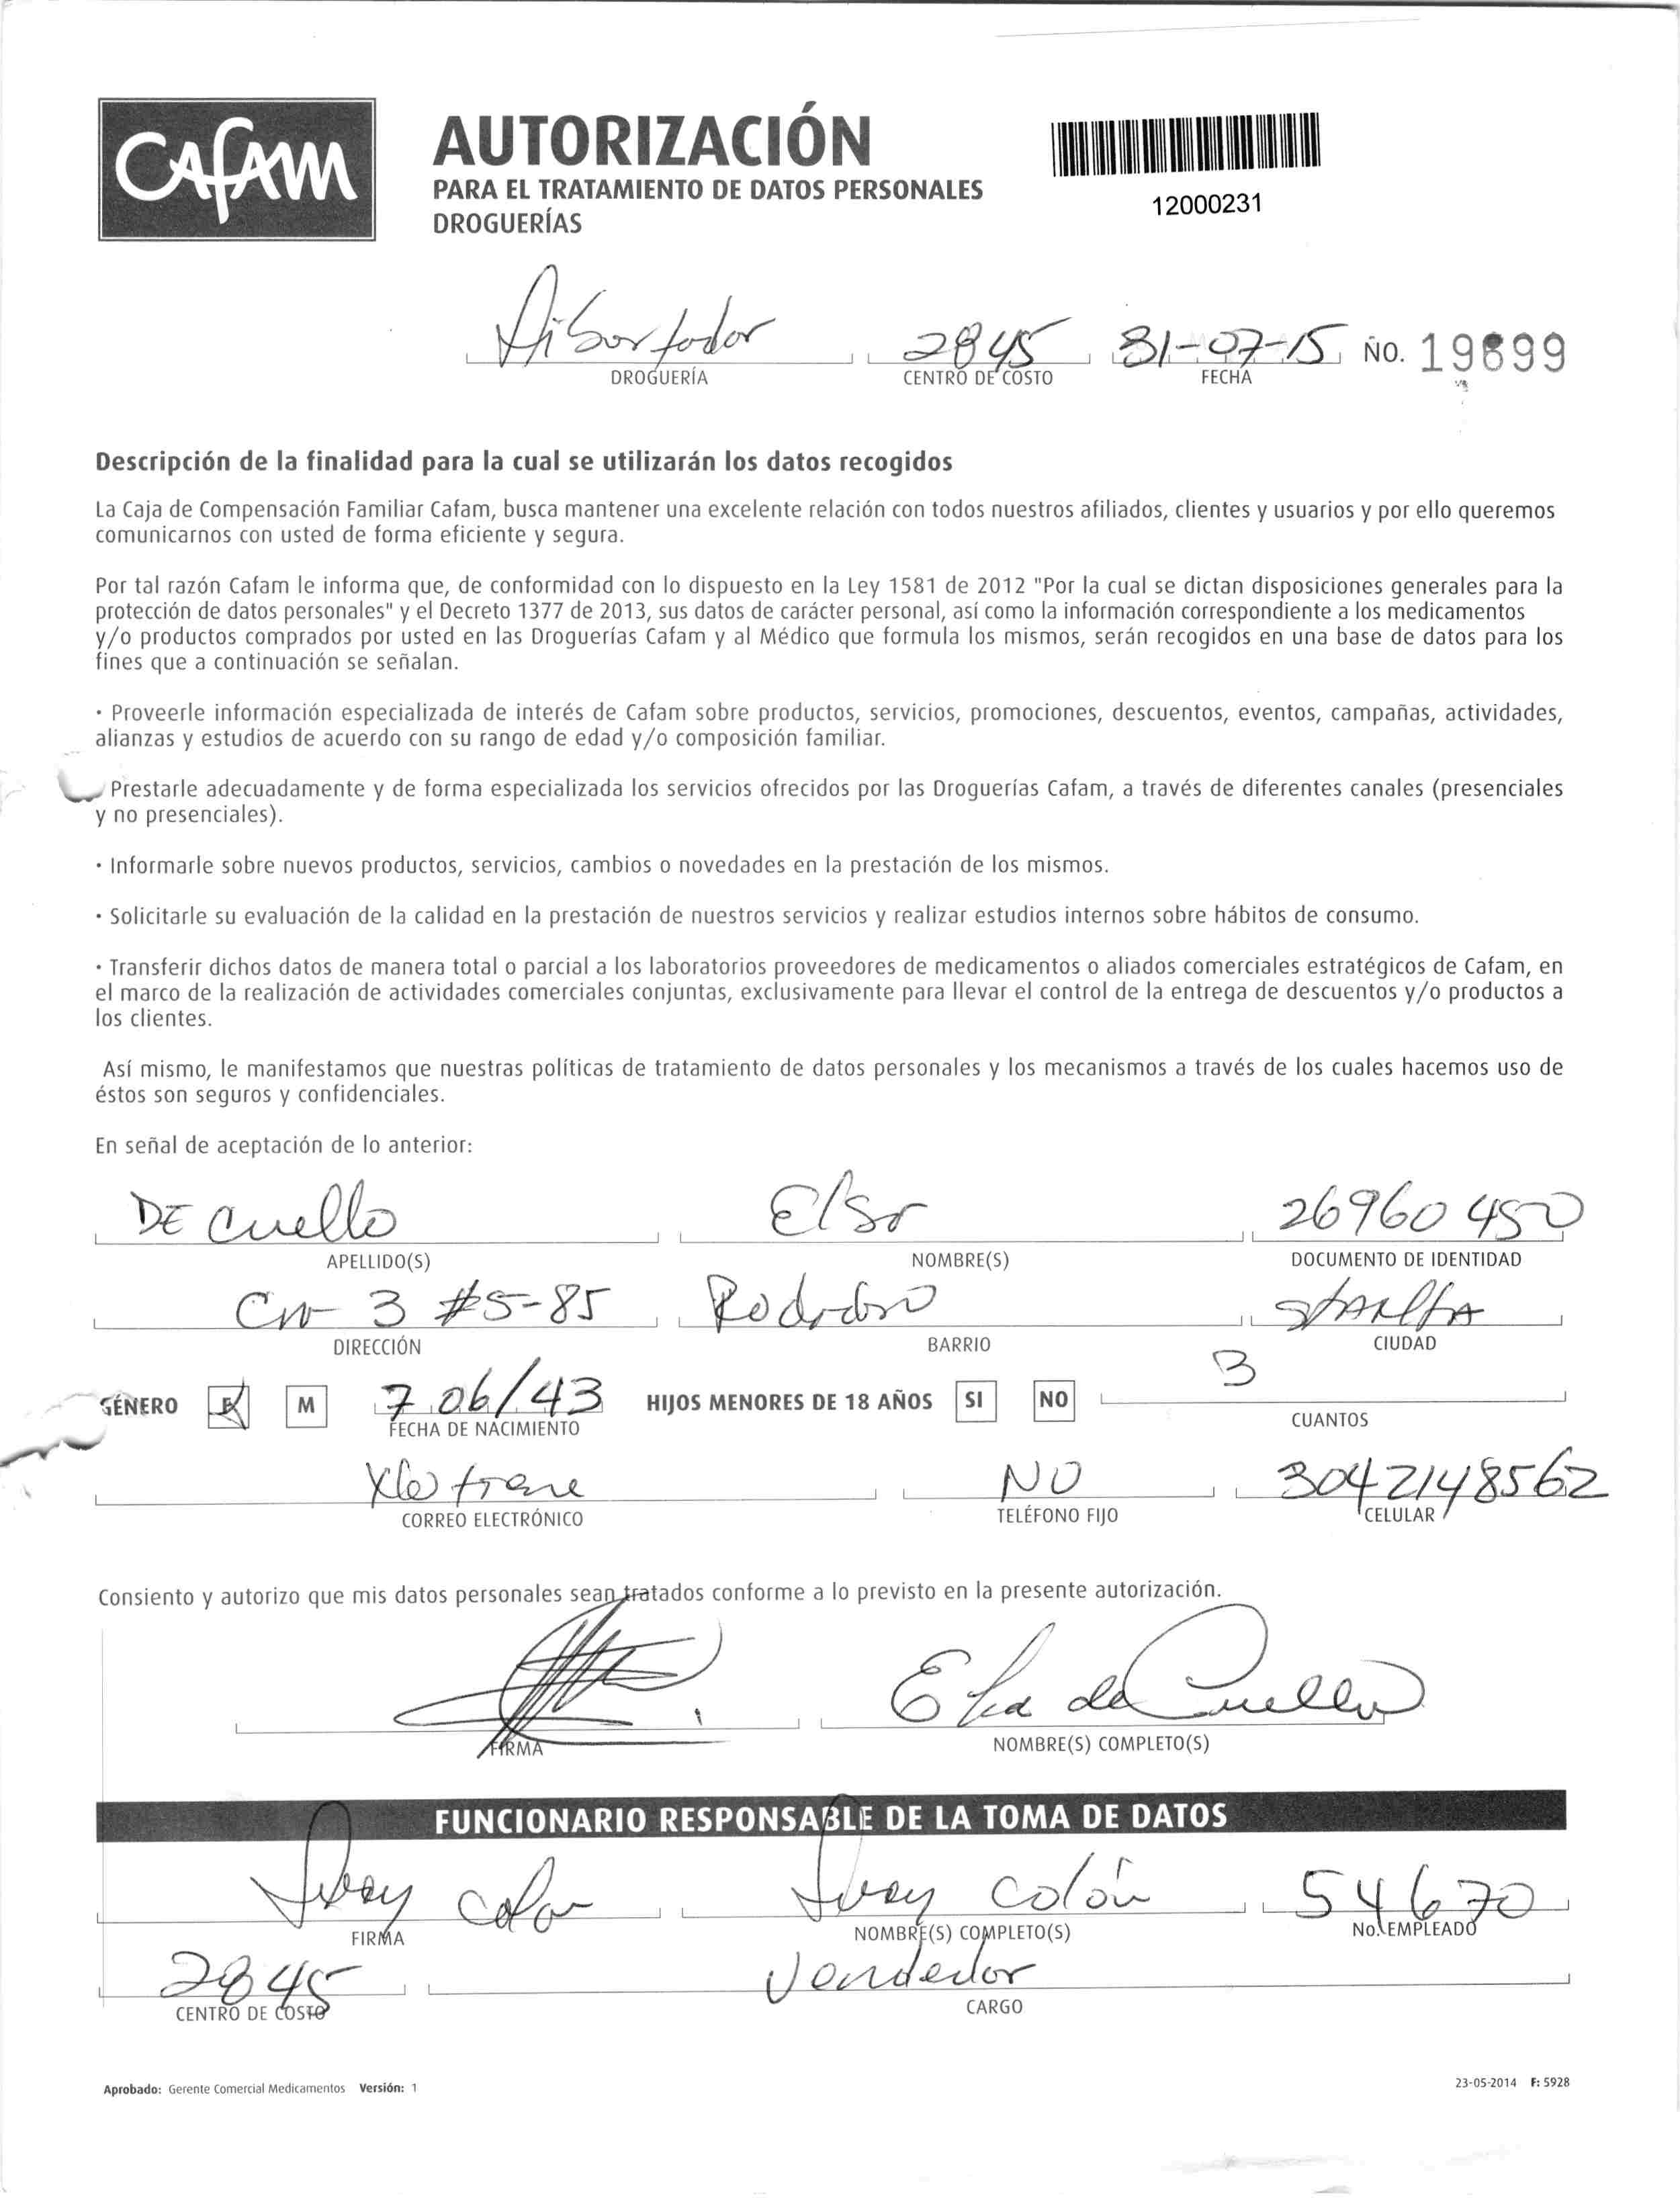 CAFAM
AUTORIZACIÓN
PARA EL TRATAMIENTO DE DATOS PERSONALES
DROGUERÍAS
12000231
2845 31-07-15 No. 19899
DROGUERÍA CENTRO DE COSTO FECHA
Descripción de la finalidad para la cual se utilizarán los datos recogidos
La Caja de Compensación Familiar Cafam, busca mantener una excelente relación con todos nuestros afiliados, clientes y usuarios y por ello queremos
comunicarnos con usted de forma eficiente y segura.
Por tal razón Cafam le informa que, de conformidad con lo dispuesto en la Ley 1581 de 2012 "Por la cual se dictan disposiciones generales para la
protección de datos personales" y el Decreto 1377 de 2013, sus datos de carácter personal, así como la información correspondiente a los medicamentos
y/o productos comprados por usted en las Droguerías Cafam y al Médico que formula los mismos, serán recogidos en una base de datos para los
fines que a continuación se señalan.
· Proveerle información especializada de interés de Cafam sobre productos, servicios, promociones, descuentos, eventos, campañas, actividades,
alianzas y estudios de acuerdo con su rango de edad y/o composición familiar.
Prestarle adecuadamente y de forma especializada los servicios ofrecidos por las Droguerías Cafam, a través de diferentes canales (presenciales
y no presenciales).
· Informarle sobre nuevos productos, servicios, cambios o novedades en la prestación de los mismos.
· Solicitarle su evaluación de la calidad en la prestación de nuestros servicios y realizar estudios internos sobre hábitos de consumo.
· Transferir dichos datos de manera total o parcial a los laboratorios proveedores de medicamentos o aliados comerciales estratégicos de Cafam, en
el marco de la realización de actividades comerciales conjuntas, exclusivamente para llevar el control de la entrega de descuentos y/o productos a
los clientes.
Así mismo, le manifestamos que nuestras políticas de tratamiento de datos personales y los mecanismos a través de los cuales hacemos uso de
éstos son seguros y confidenciales.
En señal de aceptación de lo anterior:
DE Cuello Elsa 26960450
APELLIDO(S) NOMBRE(S) DOCUMENTO DE IDENTIDAD
3 #5-85 Rodadero
DIRECCIÓN BARRIO CIUDAD
GÉNERO F M 7 06/43 HIJOS MENORES DE 18 AÑOS SI NO 3
FECHA DE NACIMIENTO CUANTOS
No tiene NO 3042148562
CORREO ELECTRÓNICO TELÉFONO FIJO CELULAR
Consiento y autorizo que mis datos personales sean tratados conforme a lo previsto en la presente autorización.
Elsa de Cuello
FIRMA NOMBRE(S) COMPLETO(S)
FUNCIONARIO RESPONSABLE DE LA TOMA DE DATOS
Colon Colón 54670
FIRMA NOMBRE(S) COMPLETO(S) No. EMPLEADO
2845 Vendedor
CENTRO DE COSTO CARGO
Aprobado: Gerente Comercial Medicamentos Versión: 1 23-05-2014 F: 5928